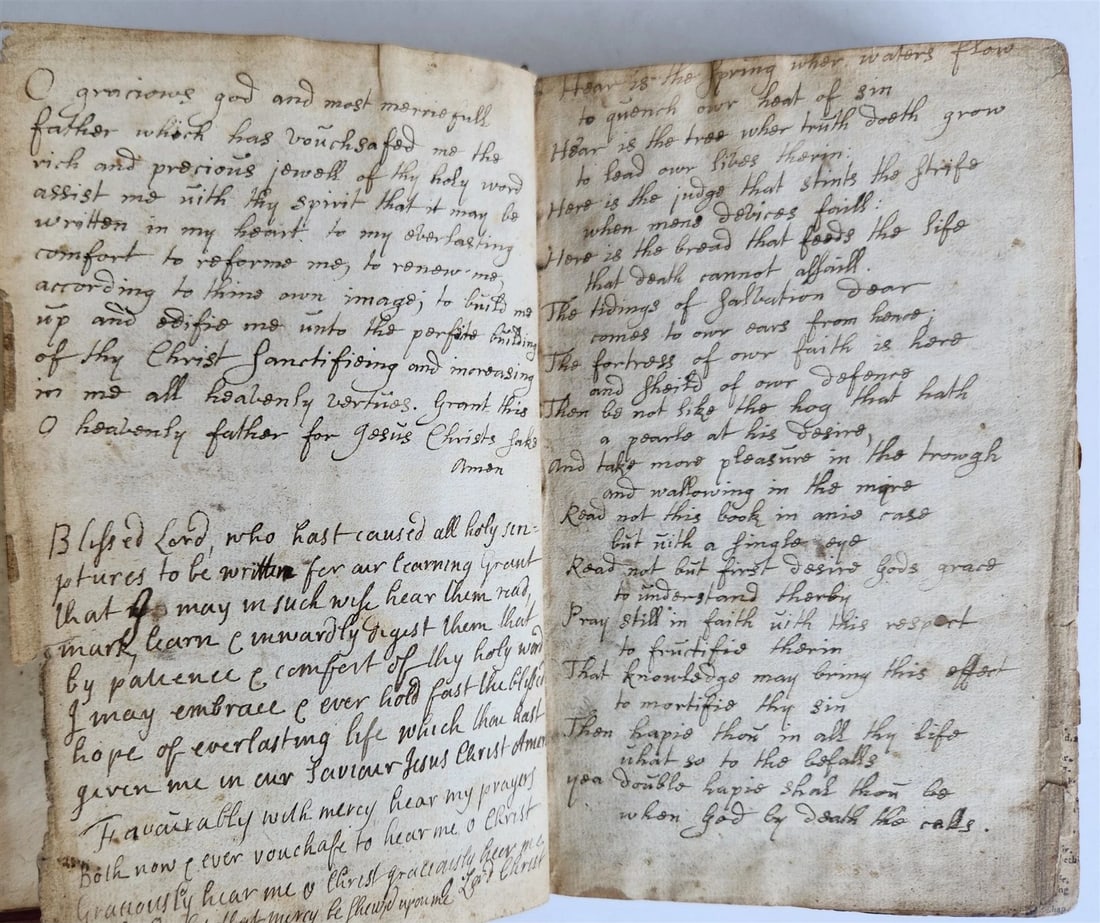 O graciows god and most merciefull
father which has vouchsafed me the
rich and precious jewell of thy holy word
assist me uith thy spirit that it may be
written in my heart to my everlasting
comfort to reforme me, to renew me,
according to thine own image; to build me
up and edifie me unto the perfite building
of thy Christ Sanctifieing and increasing
in me all heavenly vertues. Grant this
O heavenly father for Jesus Christs sake
Amen
Blessed Lord, who hast caused all holy scri=
ptures to be written for our learning Grant
that I may in such wise hear them read,
mark, learn & inwardly digest them that
by patience & comfort of thy holy word
I may embrace & ever hold fast the blessed
hope of everlasting life which thou hast
given me in our Saviour Jesus Christ Amen
Favourably with mercy hear my prayers
Both now & ever vouchafe to hear me o Christ
Graciously hear me o Christ graciously hear me
Lord Christ
that mercy be shewd upon me
Hear is the spring wher waters flow
to quench owr heat of sin
Hear is the tree wher truth doeth grow
to lead owr lives therin:
Here is the judge that stints the strife
when mens devices faill:
Here is the bread that feeds the life
that death cannot assaill.
The tidings of Salvation dear
comes to owr ears from hence;
The fortress of owr faith is here
and sheild of owr defence
Then be not like the hog that hath
a pearle at his desire,
And take more pleasure in the trowgh
and wallowing in the myre
Read not this book in anie case
but uith a single eye
Read not but first desire Gods grace
to understand therby
Pray still in faith uith this respect
to fructifie therin
That knowledge may bring this effect
to mortifie thy sin
Then hapie thou in all thy life
uhat so to the befalls
yea double hapie shal thou be
when God by death the calls.